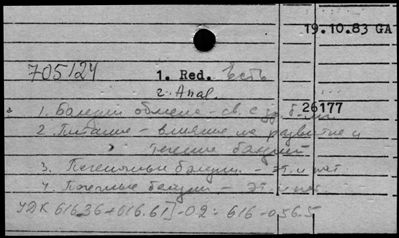 19.10.83 GA
705/24
1. Red. Есть
2. Anal.
26177
1. Болезни обмена - св. с
2. Питание - влияние на развитие и
течение болезней
3. Печеночные болезни - эт. и пат
4. Почечные болезни - эт. и пат.
УДК 616.36+616.61]-02:616-056.5